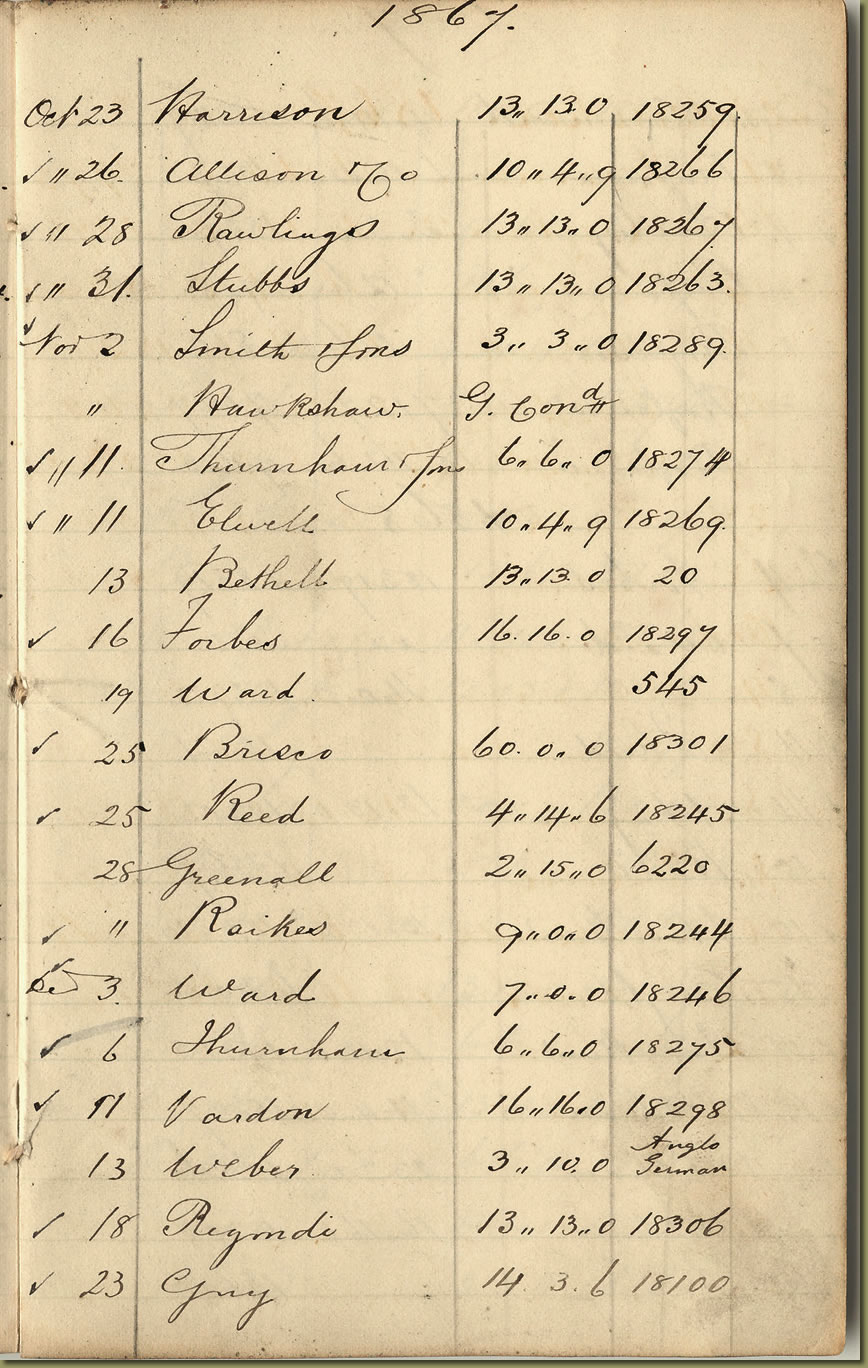 1867.
Oct 23 Harrison 13,, 13. 0 18259.
✓ ,, 26. Allison & Co 10 ,, 4 ,, 9 18266
✓ ,, 28 Rawlings 13 ,, 13 ,, 0 18267
✓ ,, 31. Stubbs 13 ,, 13 ,, 0 18263.
✓ Nov 2 Smith & Sons 3 ,, 3 ,, 0 18289.
,, Hawkshaw. G. Cond
✓ ,, 11. Thurnham & Son 6 ,, 6 ,, 0 18274
✓ ,, 11 Elwell 10 ,, 4 ,, 9 18269.
13 Bethell 13 ,, 13. 0 20
✓ 16 Forbes 16. 16. 0 18297
19 Ward. 545
✓ 25 Brisco 60. 0 ,, 0 18301
✓ 25 Reed 4 ,, 14 ,, 6 18245
28 Greenall 2 ,, 15 ,, 0 6220
✓ ,, Raikes 9 ,, 0 ,, 0 18244
✓ De 3. Ward 7 ,, 0. 0 18246
✓ 6 Thurnham 6 ,, 6 ,, 0 18275
✓ 11 Vardon 16 ,, 16 ,, 0 18298
13 Weber 3 ,, 10. 0 Anglo
German
✓ 18 Regondi 13 ,, 13 ,, 0 18306
✓ 23 Guy 14. 3. 6 18100